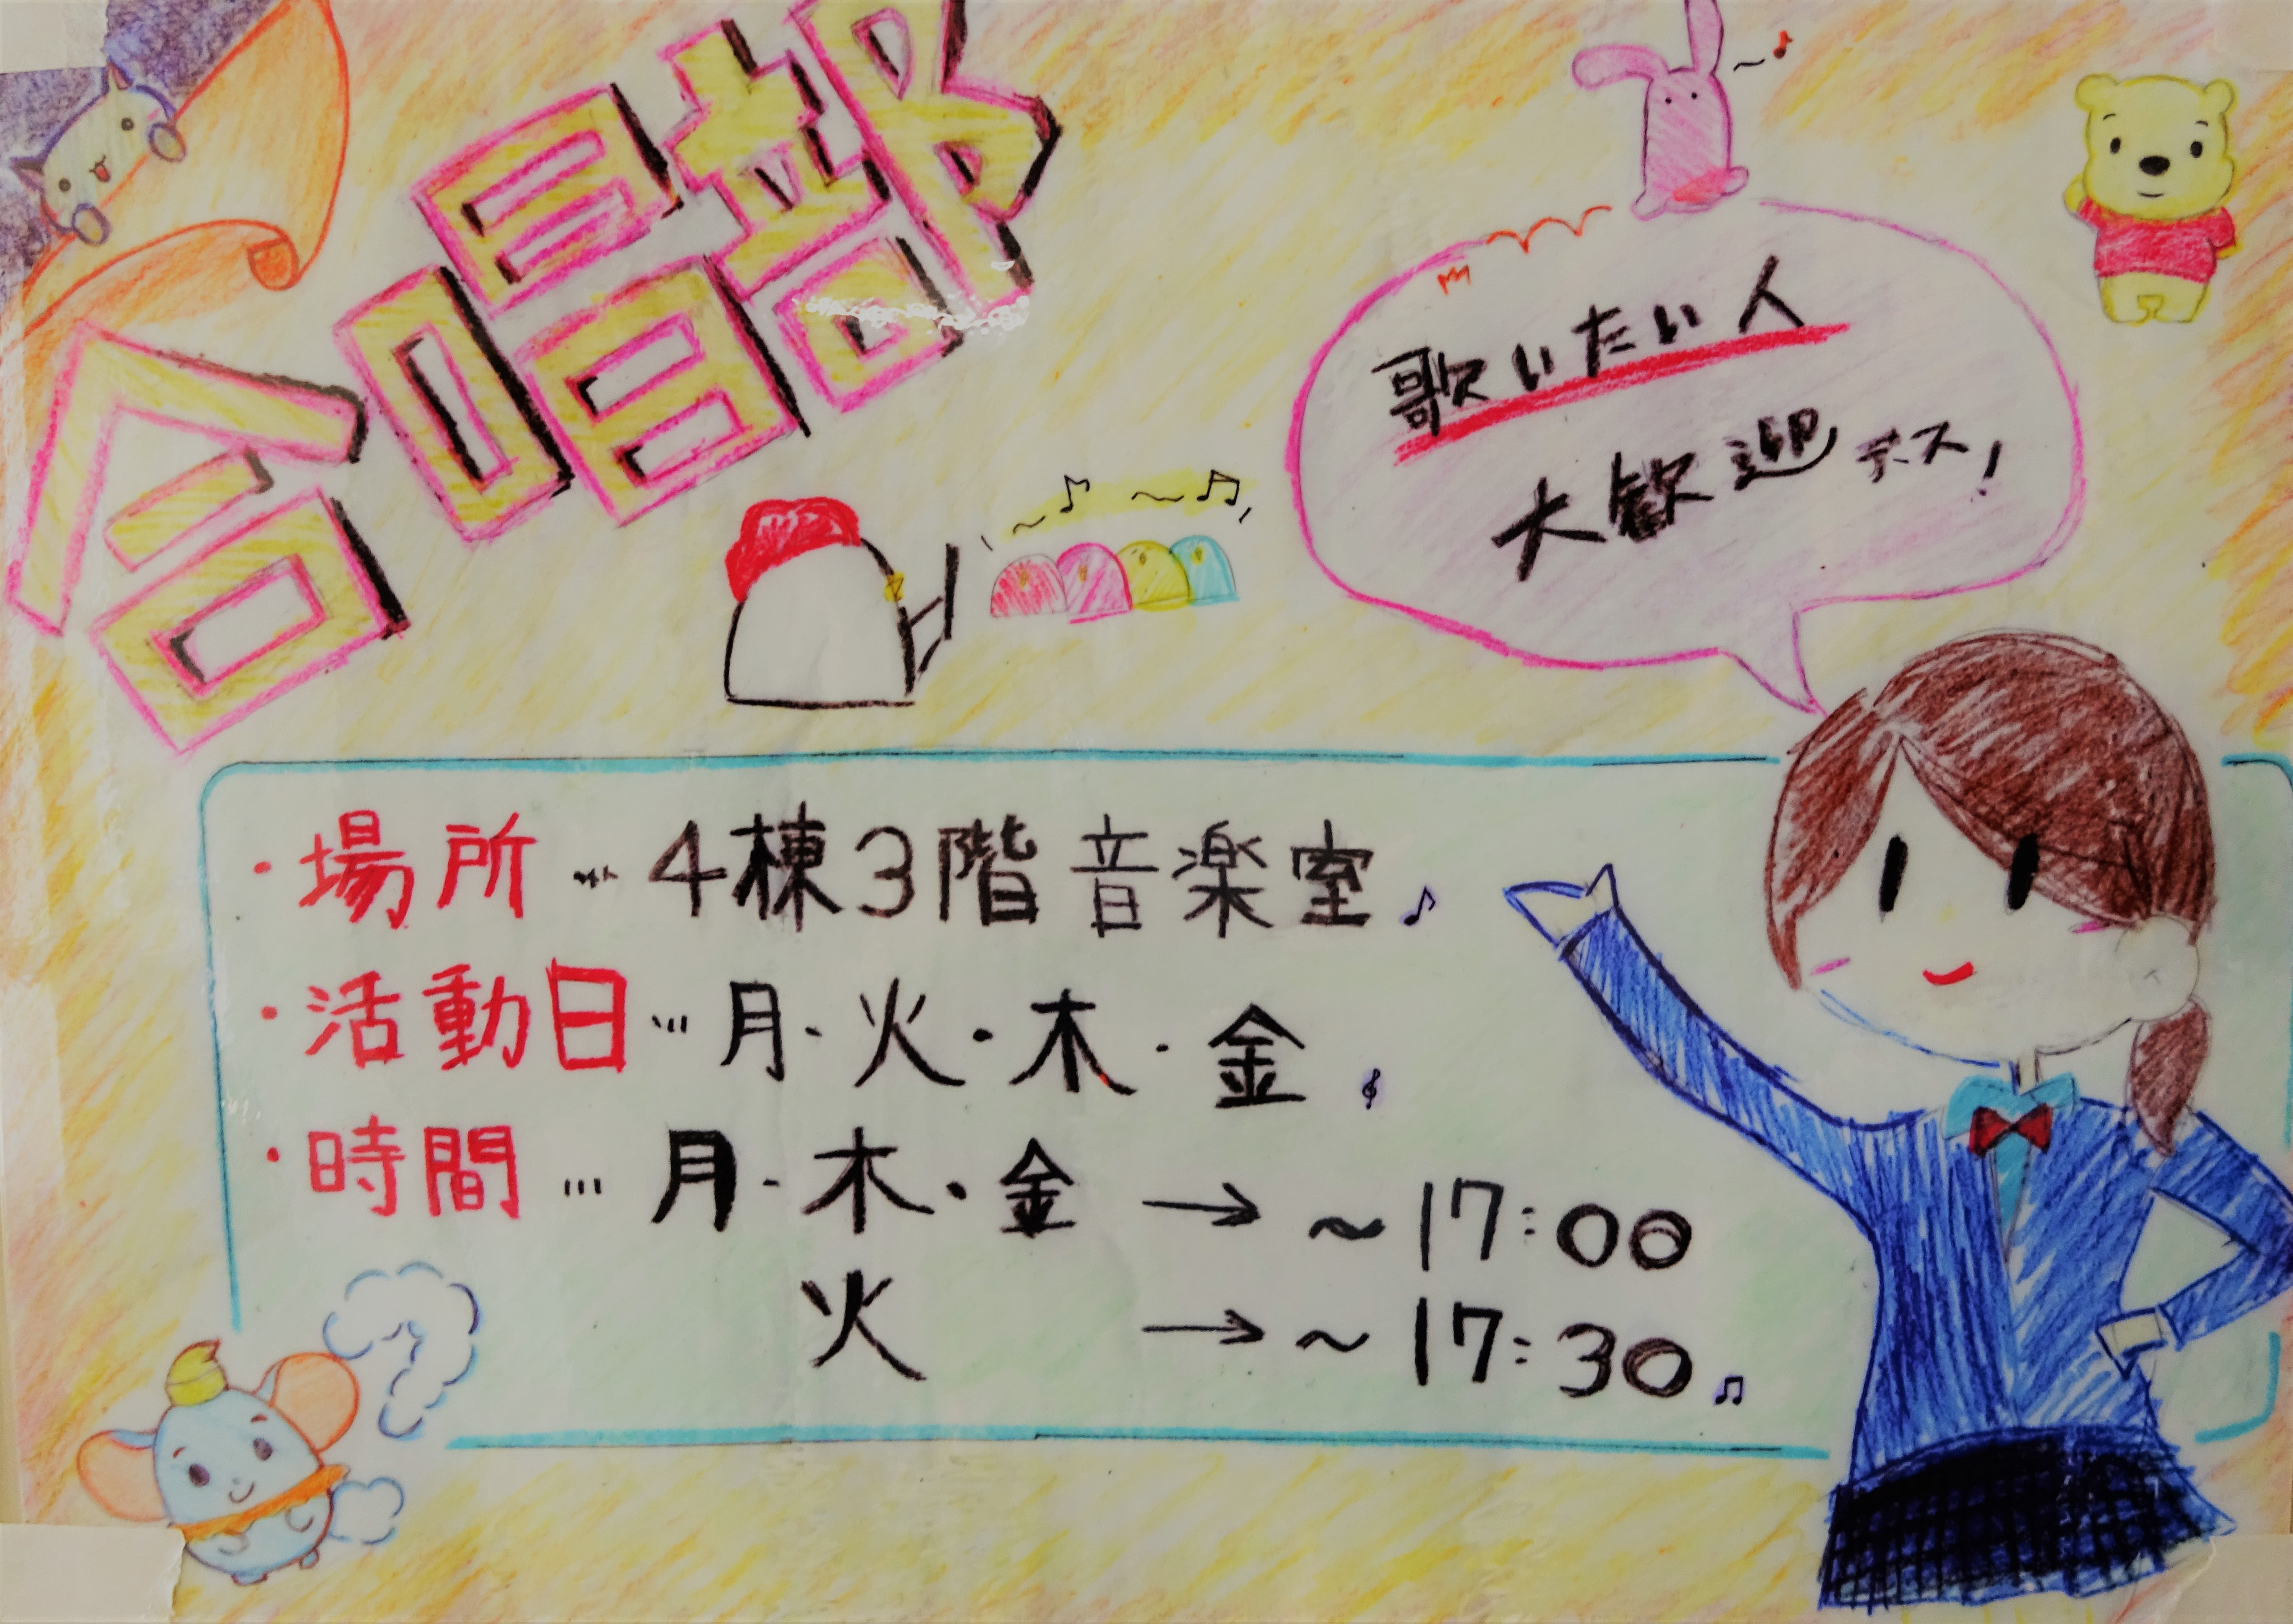 合唱部
歌いたい人
大歓迎デス!
・場所…4棟3階音楽室♪
・活動日…月・火・木・金
・時間…月・木・金→~17:00
火→~17:30♫